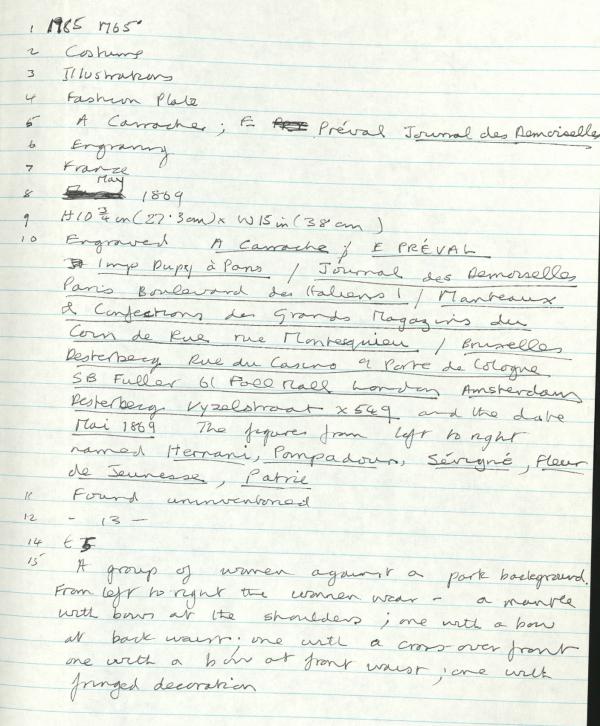 1 1965 1765
2 Costume
3 Illustrations
4 Fashion Plate
5 A Carrache; E Préval Journal des Demoiselles
6 Engraving
7 France
8 May 1869
9 H10 3/4 in (27.3cm) x W15in (38cm)
10 Engraved A Carrache; E PRÉVAL
Imp Dupuy à Paris / Journal des Demoiselles
Paris Boulevard des Italiens 1 / Manteaux
& Confections des Grands Magazins du
Coin de Rue rue Montesquieu / Bruxelles
Desterbecq Rue du Casino 9 Porte de Cologne
SB Fuller 61 Pall Mall London Amsterdam
Desterbecq Vyzelstraat x549 and the date
Mai 1869 The figures from left to right
named Hernani, Pompadour, Sévigné, Fleur
de Jeunesse, Patrie
11 Found uninventoried
12 - 13 -
14 £5
15 A group of women against a park background.
From left to right the women wear - a mantle
with bows at the shoulders; one with a bow
at back waist; one with a cross-over front
one with a bow at front waist; one with
fringed decoration